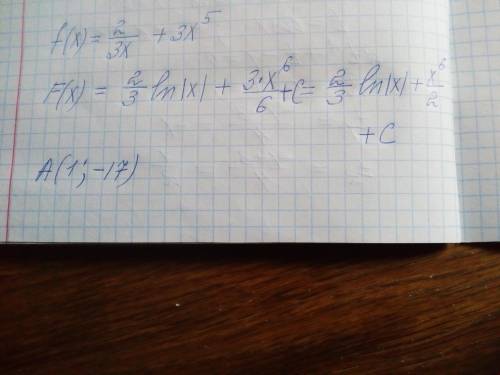 f(x) = 2/3x + 3x^5
F(x) = 2/3 ln|x| + 3·x^6/6 + C = 2/3 ln|x| + x^6/2
+ C
A(1; -17)